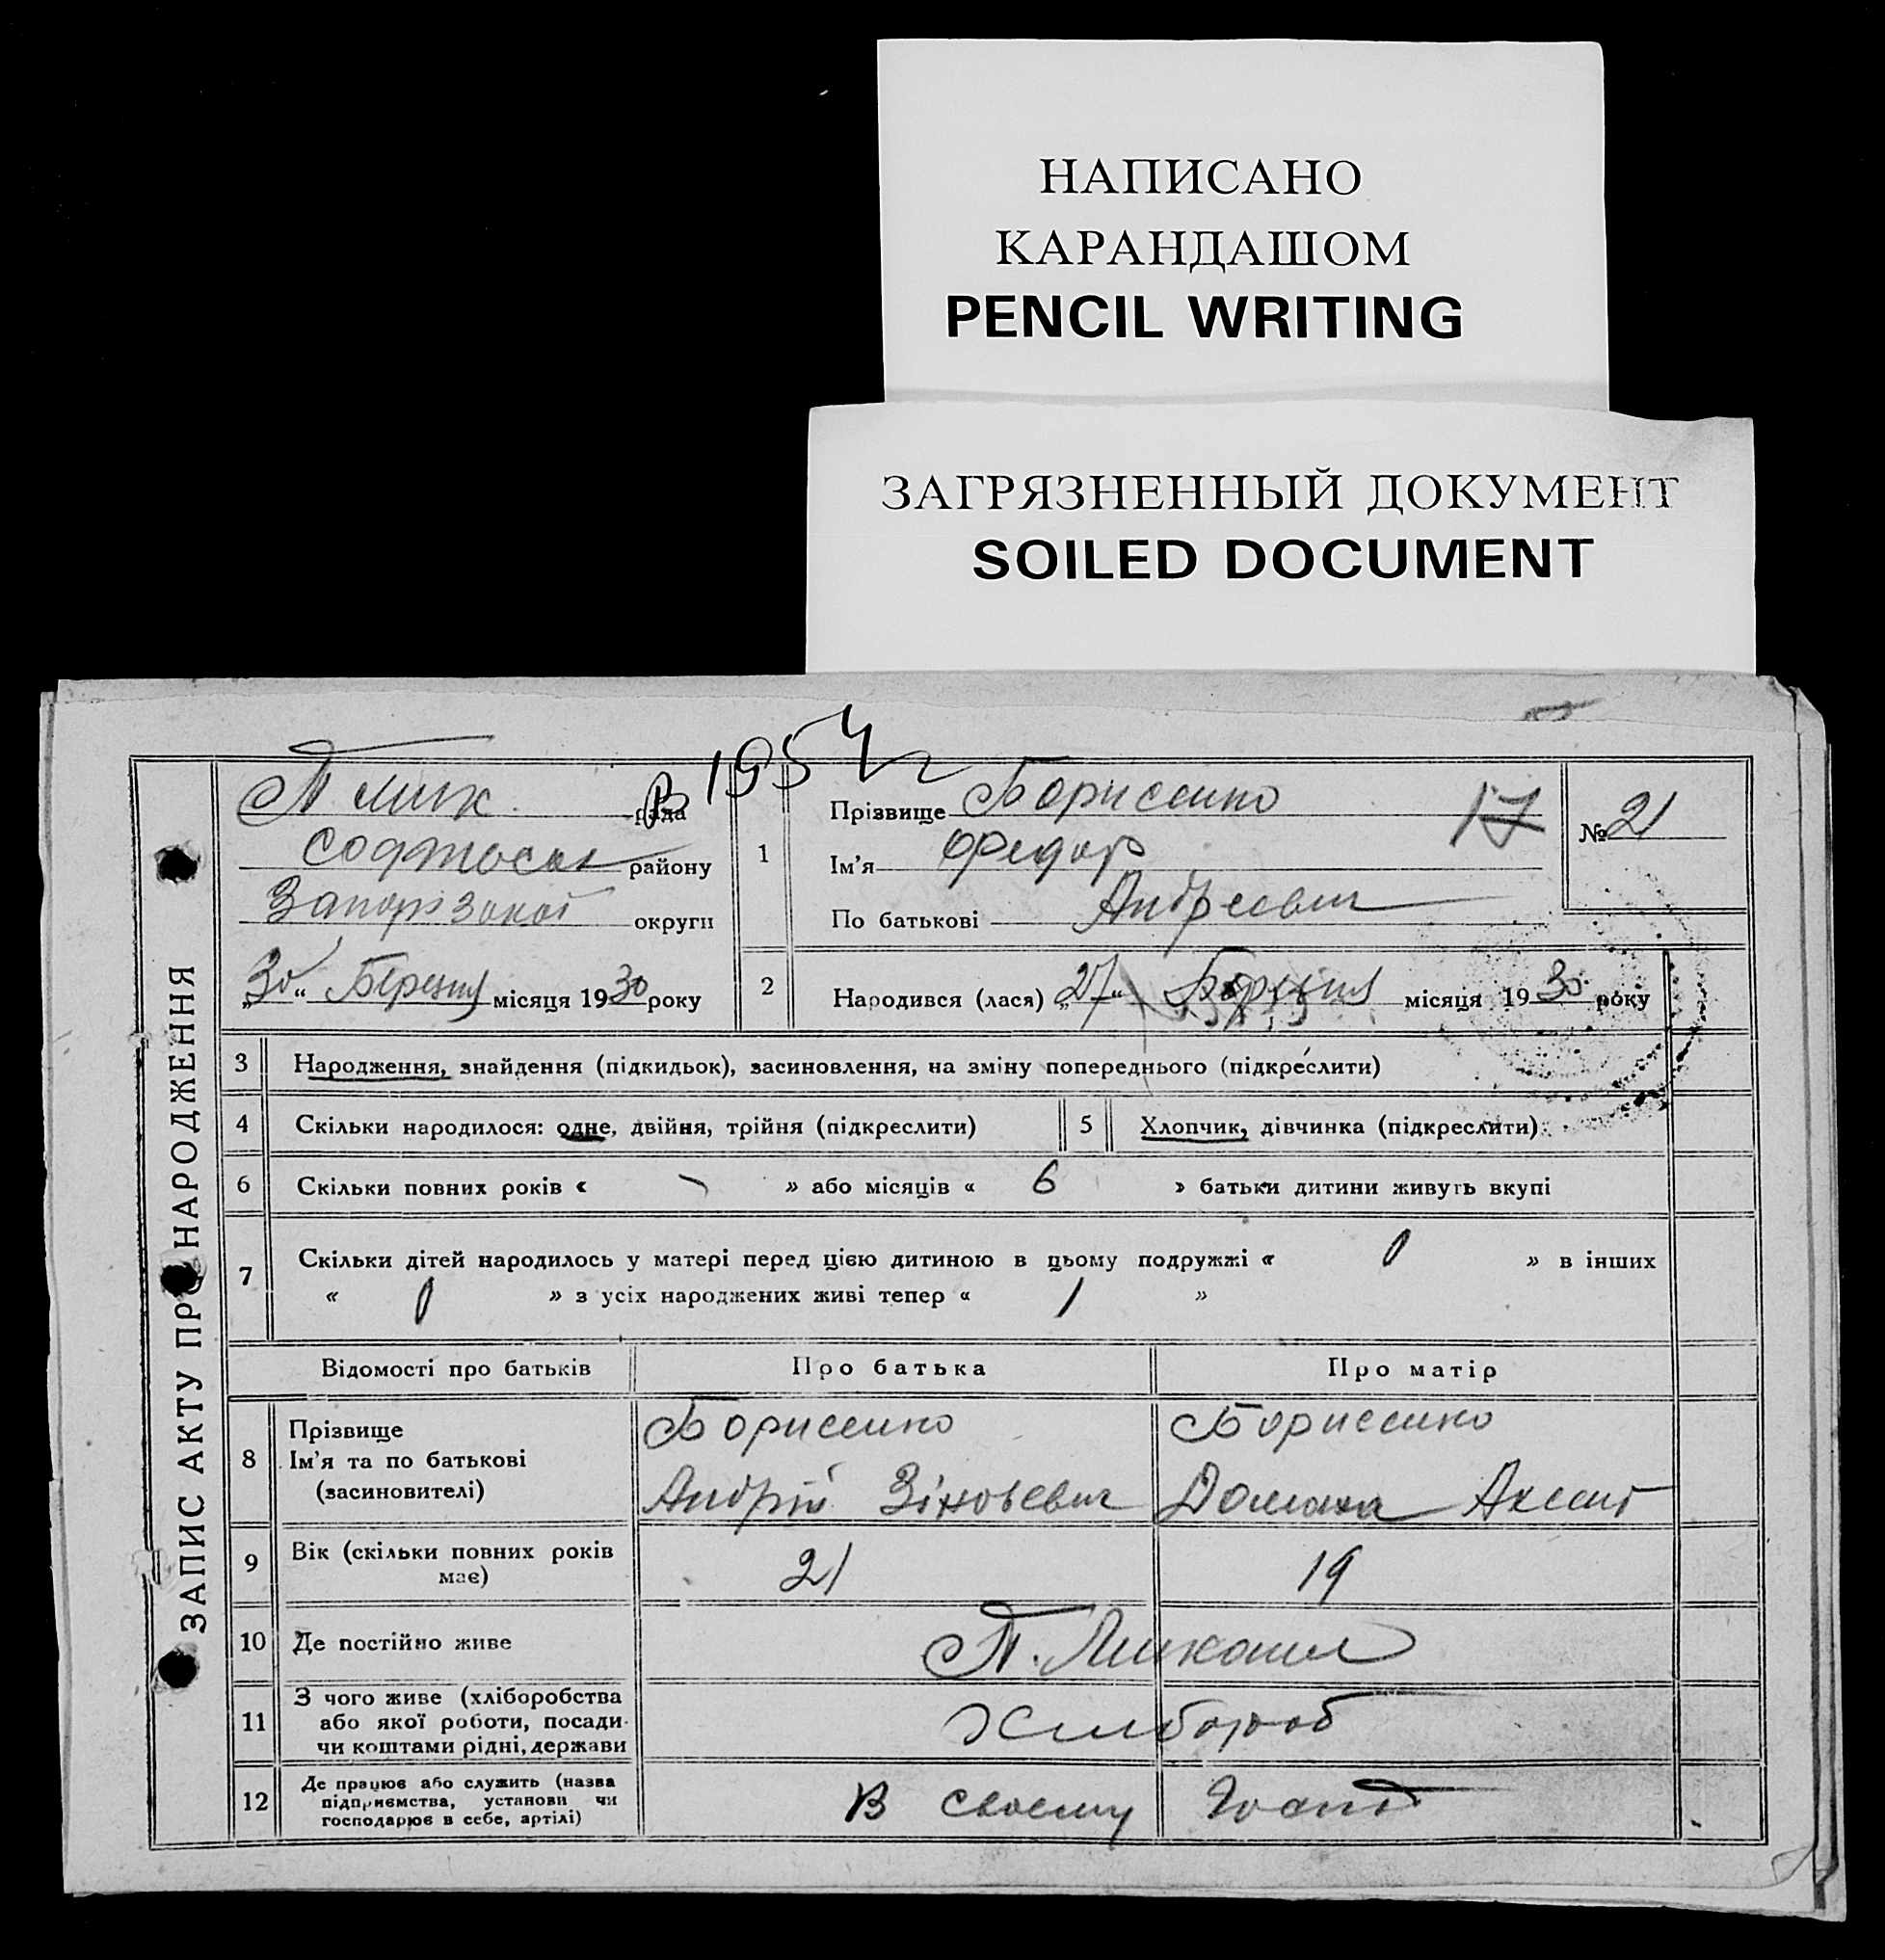 НАПИСАНО
КАРАНДАШОМ
PENCIL WRITING
ЗАГРЯЗНЕННЫЙ ДОКУМЕНТ
SOILED DOCUMENT
1954
ЗАПИС АКТУ ПРО НАРОДЖЕННЯ
рада
району
Запорізької округи
„30“ Березня місяця 1930 року
1
Прізвище Борисенко
Ім'я Федор
По батькові Андреевич
17
№ 21
2 Народився (лася) „27“ Березня місяця 1930 року
3 Народження, знайдення (підкидьок), засиновлення, на зміну попереднього (підкреслити)
4 Скільки народилося: одне, двійня, трійня (підкреслити) 5 Хлопчик, дівчинка (підкреслити)
6 Скільки повних років « - » або місяців « 6 » батьки дитини живуть вкупі
7 Скільки дітей народилось у матері перед цією дитиною в цьому подружжі « 0 » в інших
« 0 » з усіх народжених живі тепер « 1 »
Відомості про батьків Про батька Про матір
8 Прізвище
Ім'я та по батькові
(засиновителі)
Борисенко
Андрій Зіновьевич
Борисенко
Домаха
9 Вік (скільки повних років
має)
21 19
10 Де постійно живе П.
11 З чого живе (хліборобства
або якої роботи, посади
чи коштами рідні, держави
Хлибороб
12 Де працює або служить (назва
підприємства, установи чи
господарює в себе, артілі)
В своєму